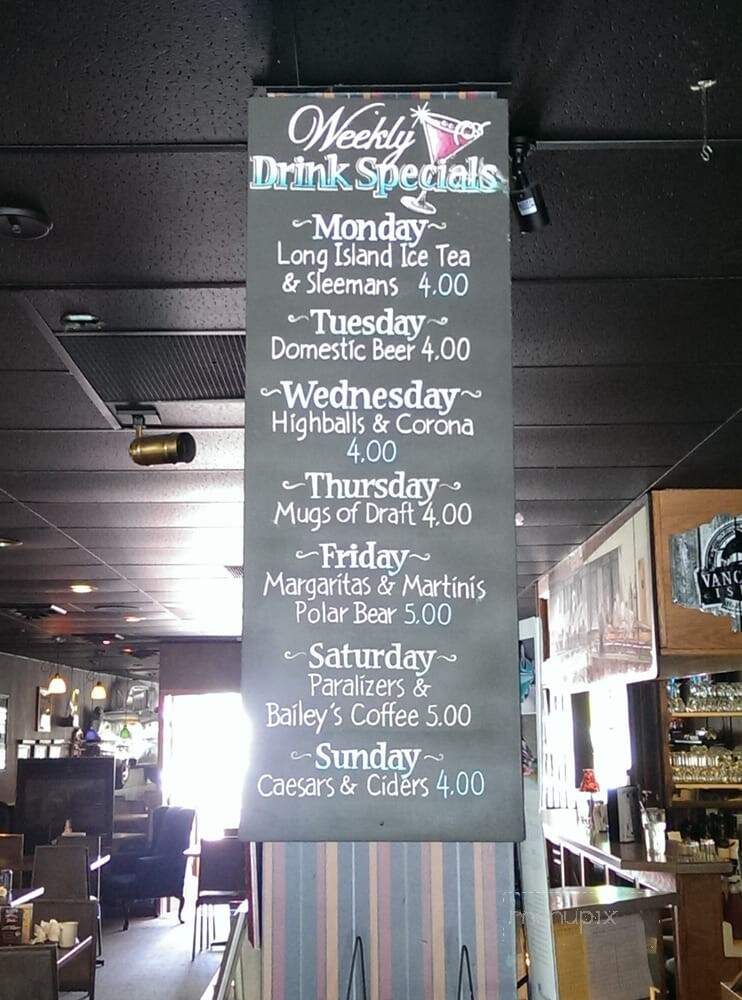 Weekly
Drink Specials
~Monday~
Long Island Ice Tea
& Sleemans 4.00
~Tuesday~
Domestic Beer 4.00
~Wednesday~
Highballs & Corona
4.00
~Thursday~
Mugs of Draft 4.00
~Friday~
Margaritas & Martinis
Polar Bear 5.00
~Saturday~
Paralizers &
Bailey's Coffee 5.00
~Sunday~
Caesars & Ciders 4.00
menupix